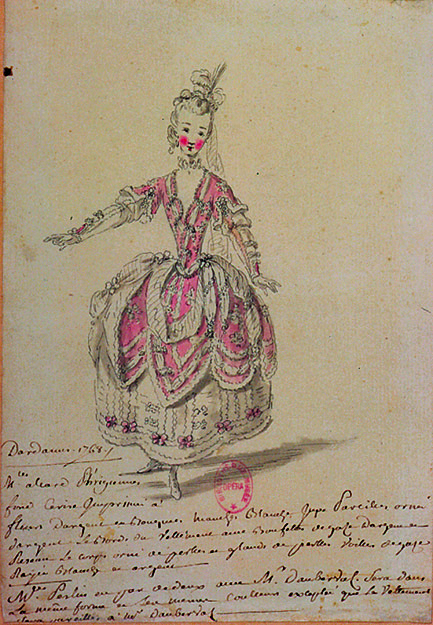 Dardanus 1768.
Mlles alard Phrigienne
fond Cerise Imprimé à
fleurs d'argent en bouquet Manches Blanche Jupe Pareilles orné
d'argent le bord du Vetement avec Bouffettes de gaze d'argent et
le corps orné de perles et glands de perles Voiles de gaze
Rayée Blanche et argent
Mlle Peslin en pas de deux avec Mr Dauberval Sera dans
la même forme et les même Couleurs excepté que le Vetement
Sera pareilles à Mr Dauberval
BIBLIOTHÈQUE OPÉRA